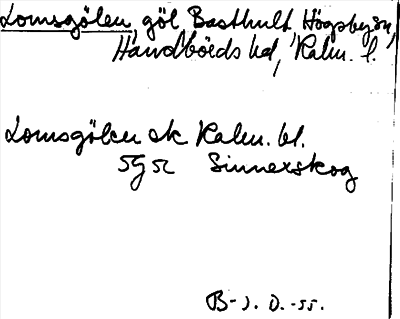 Lomsgölen, göl Basthult, Högsby sn,
Handbörds hd, Kalm. l.
Lomsgölen ek Kalm. bl.
5g52 Sinnerskog
B-J. D. -55.